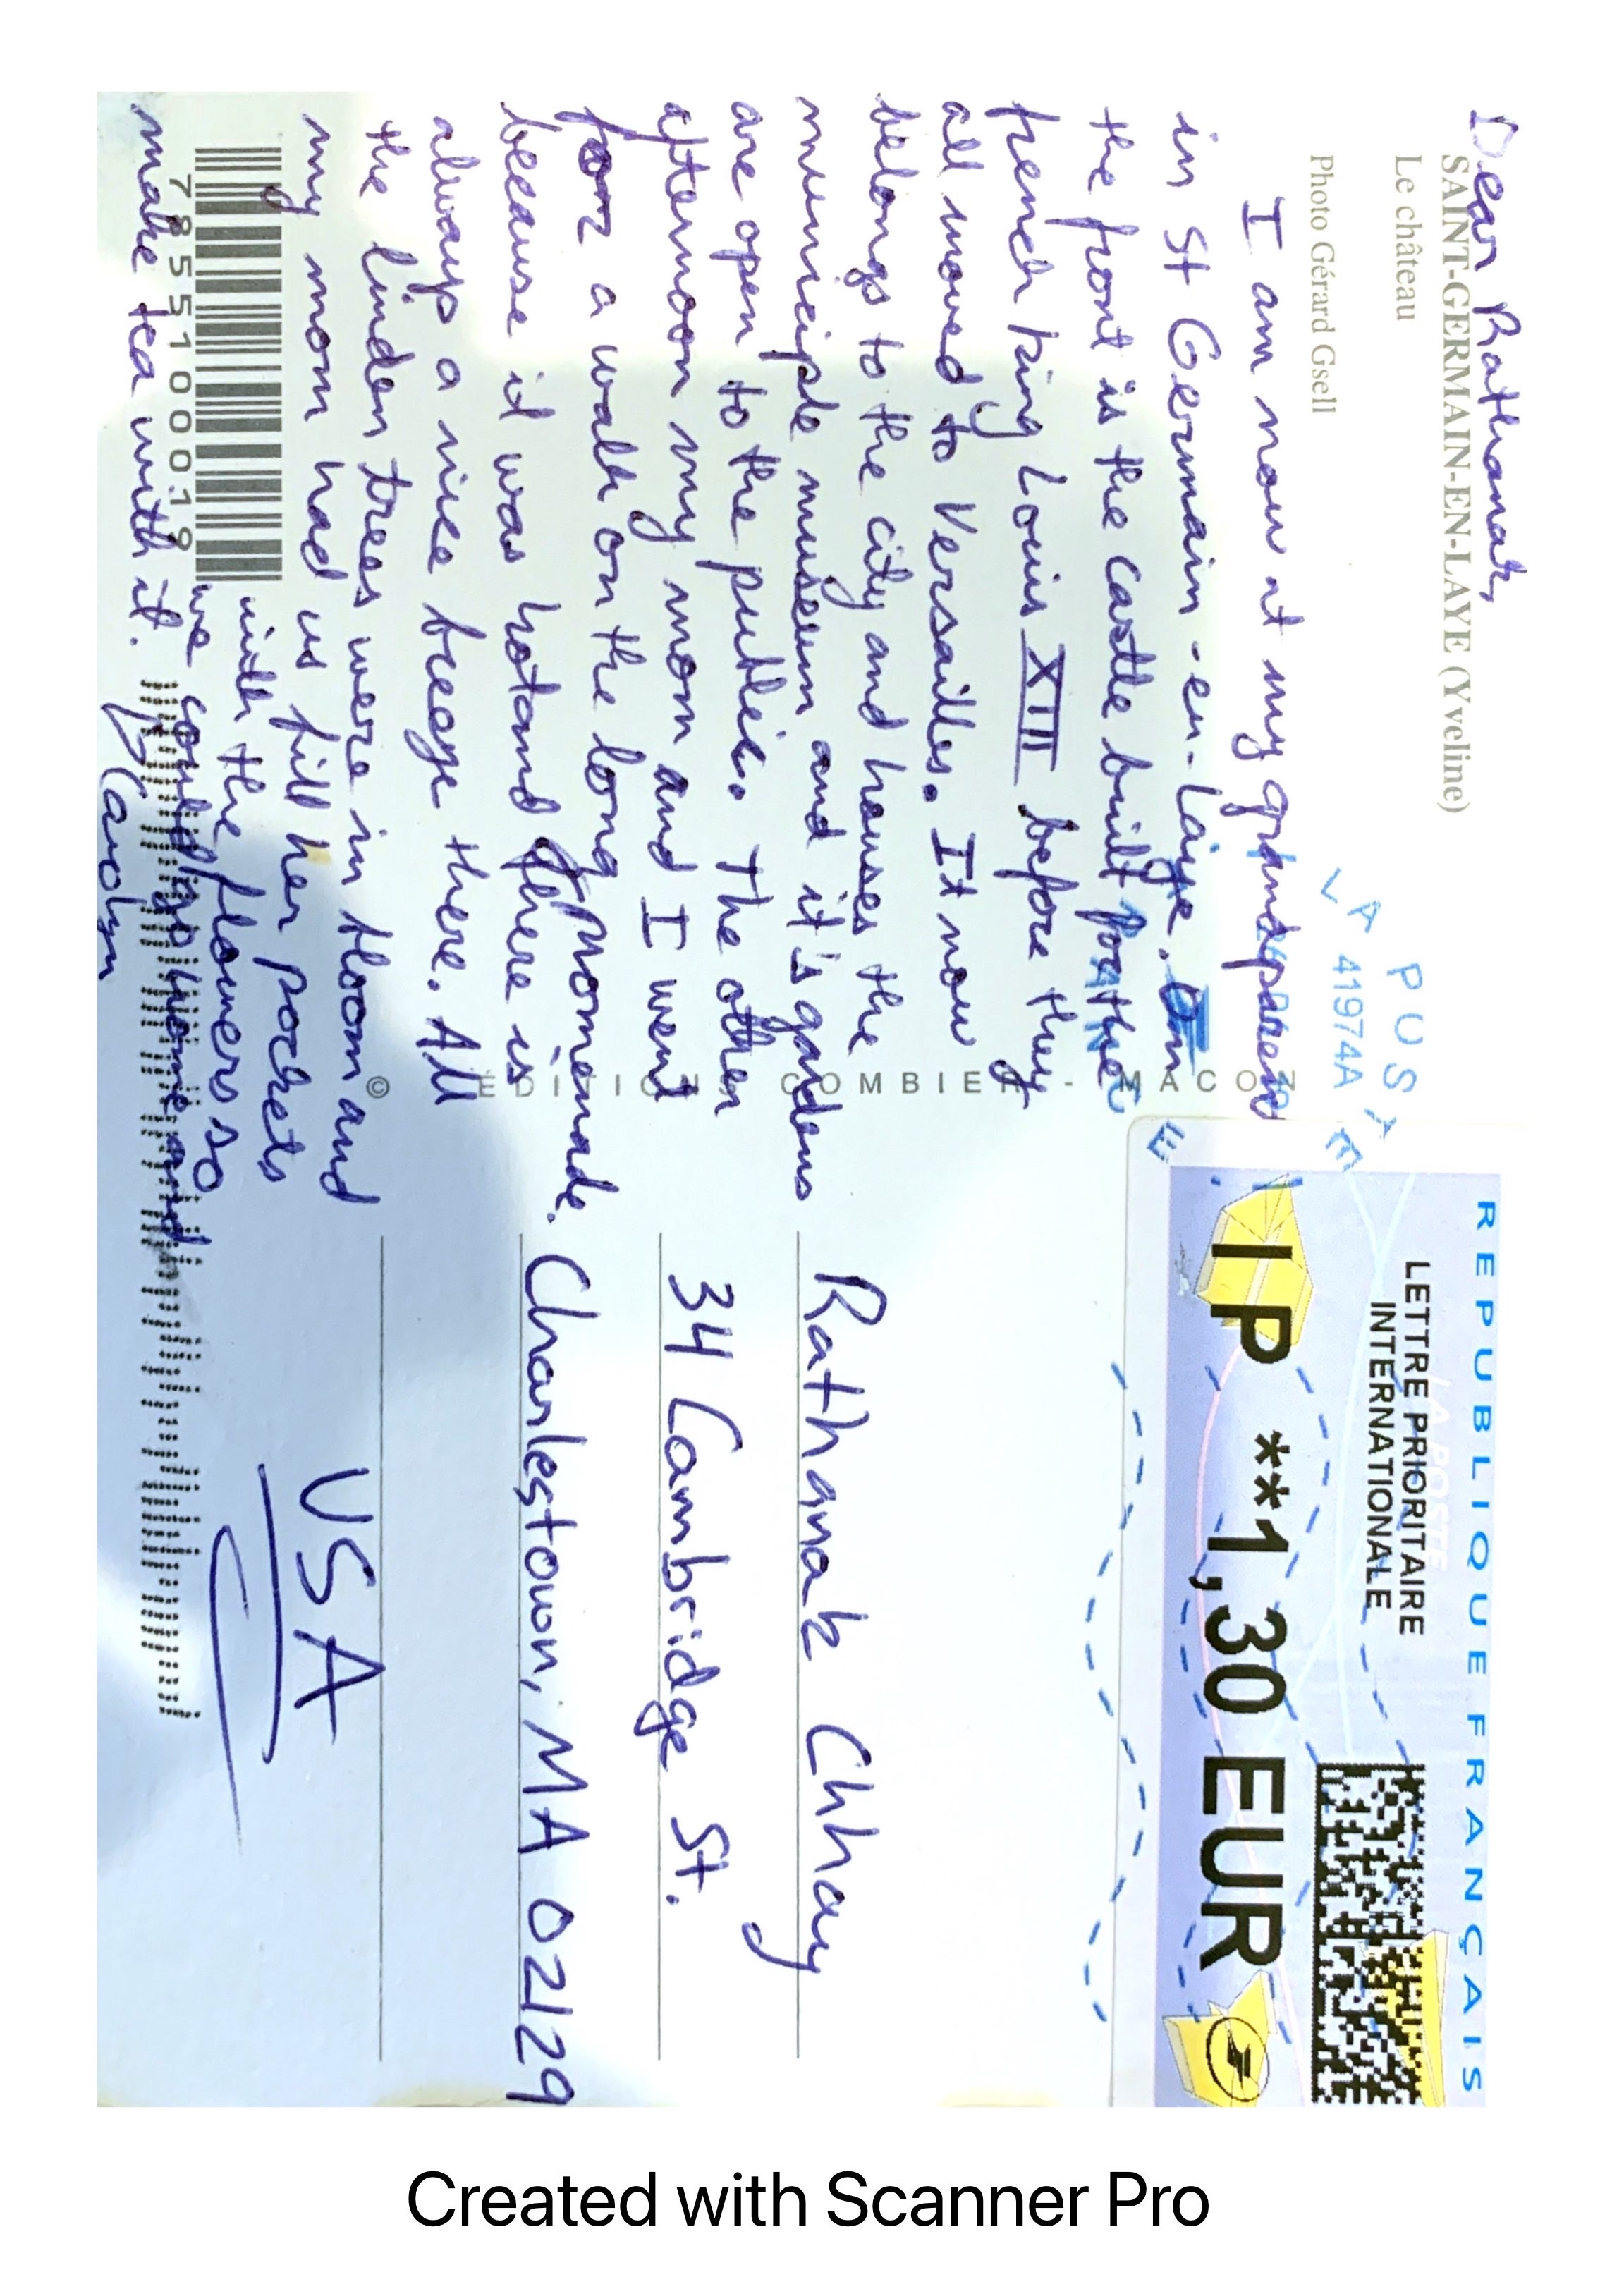 Dear Rathanak,
SAINT-GERMAIN-EN-LAYE (Yveline)
Le château
Photo Gérard Gsell
I am now at my grandparent
in St Germain-en-Laye. On
the front is the castle built for the
french king Louis XIII before they
all moved to Versailles. It now
belongs to the city and houses the
municiple museum and it's gardens
are open to the public. The other
afternoon my mom and I went
for a walk on the long promenade.
because it was hot and there is
always a nice breeze there. All
the linden trees were in bloom and
my mom had us fill her pockets
with the flowers so
we could go home and
make tea with it.
Carolyn
7 85510 00019
© EDITIONS COMBIER - MACON
POSTE
41974A
REPUBLIQUE FRANÇAISE
LETTRE PRIORITAIRE
INTERNATIONALE
LA POSTE
IP **1,30 EUR
Rathanak Chhay
34 Cambridge St.
Charlestown, MA 02129
USA
Created with Scanner Pro